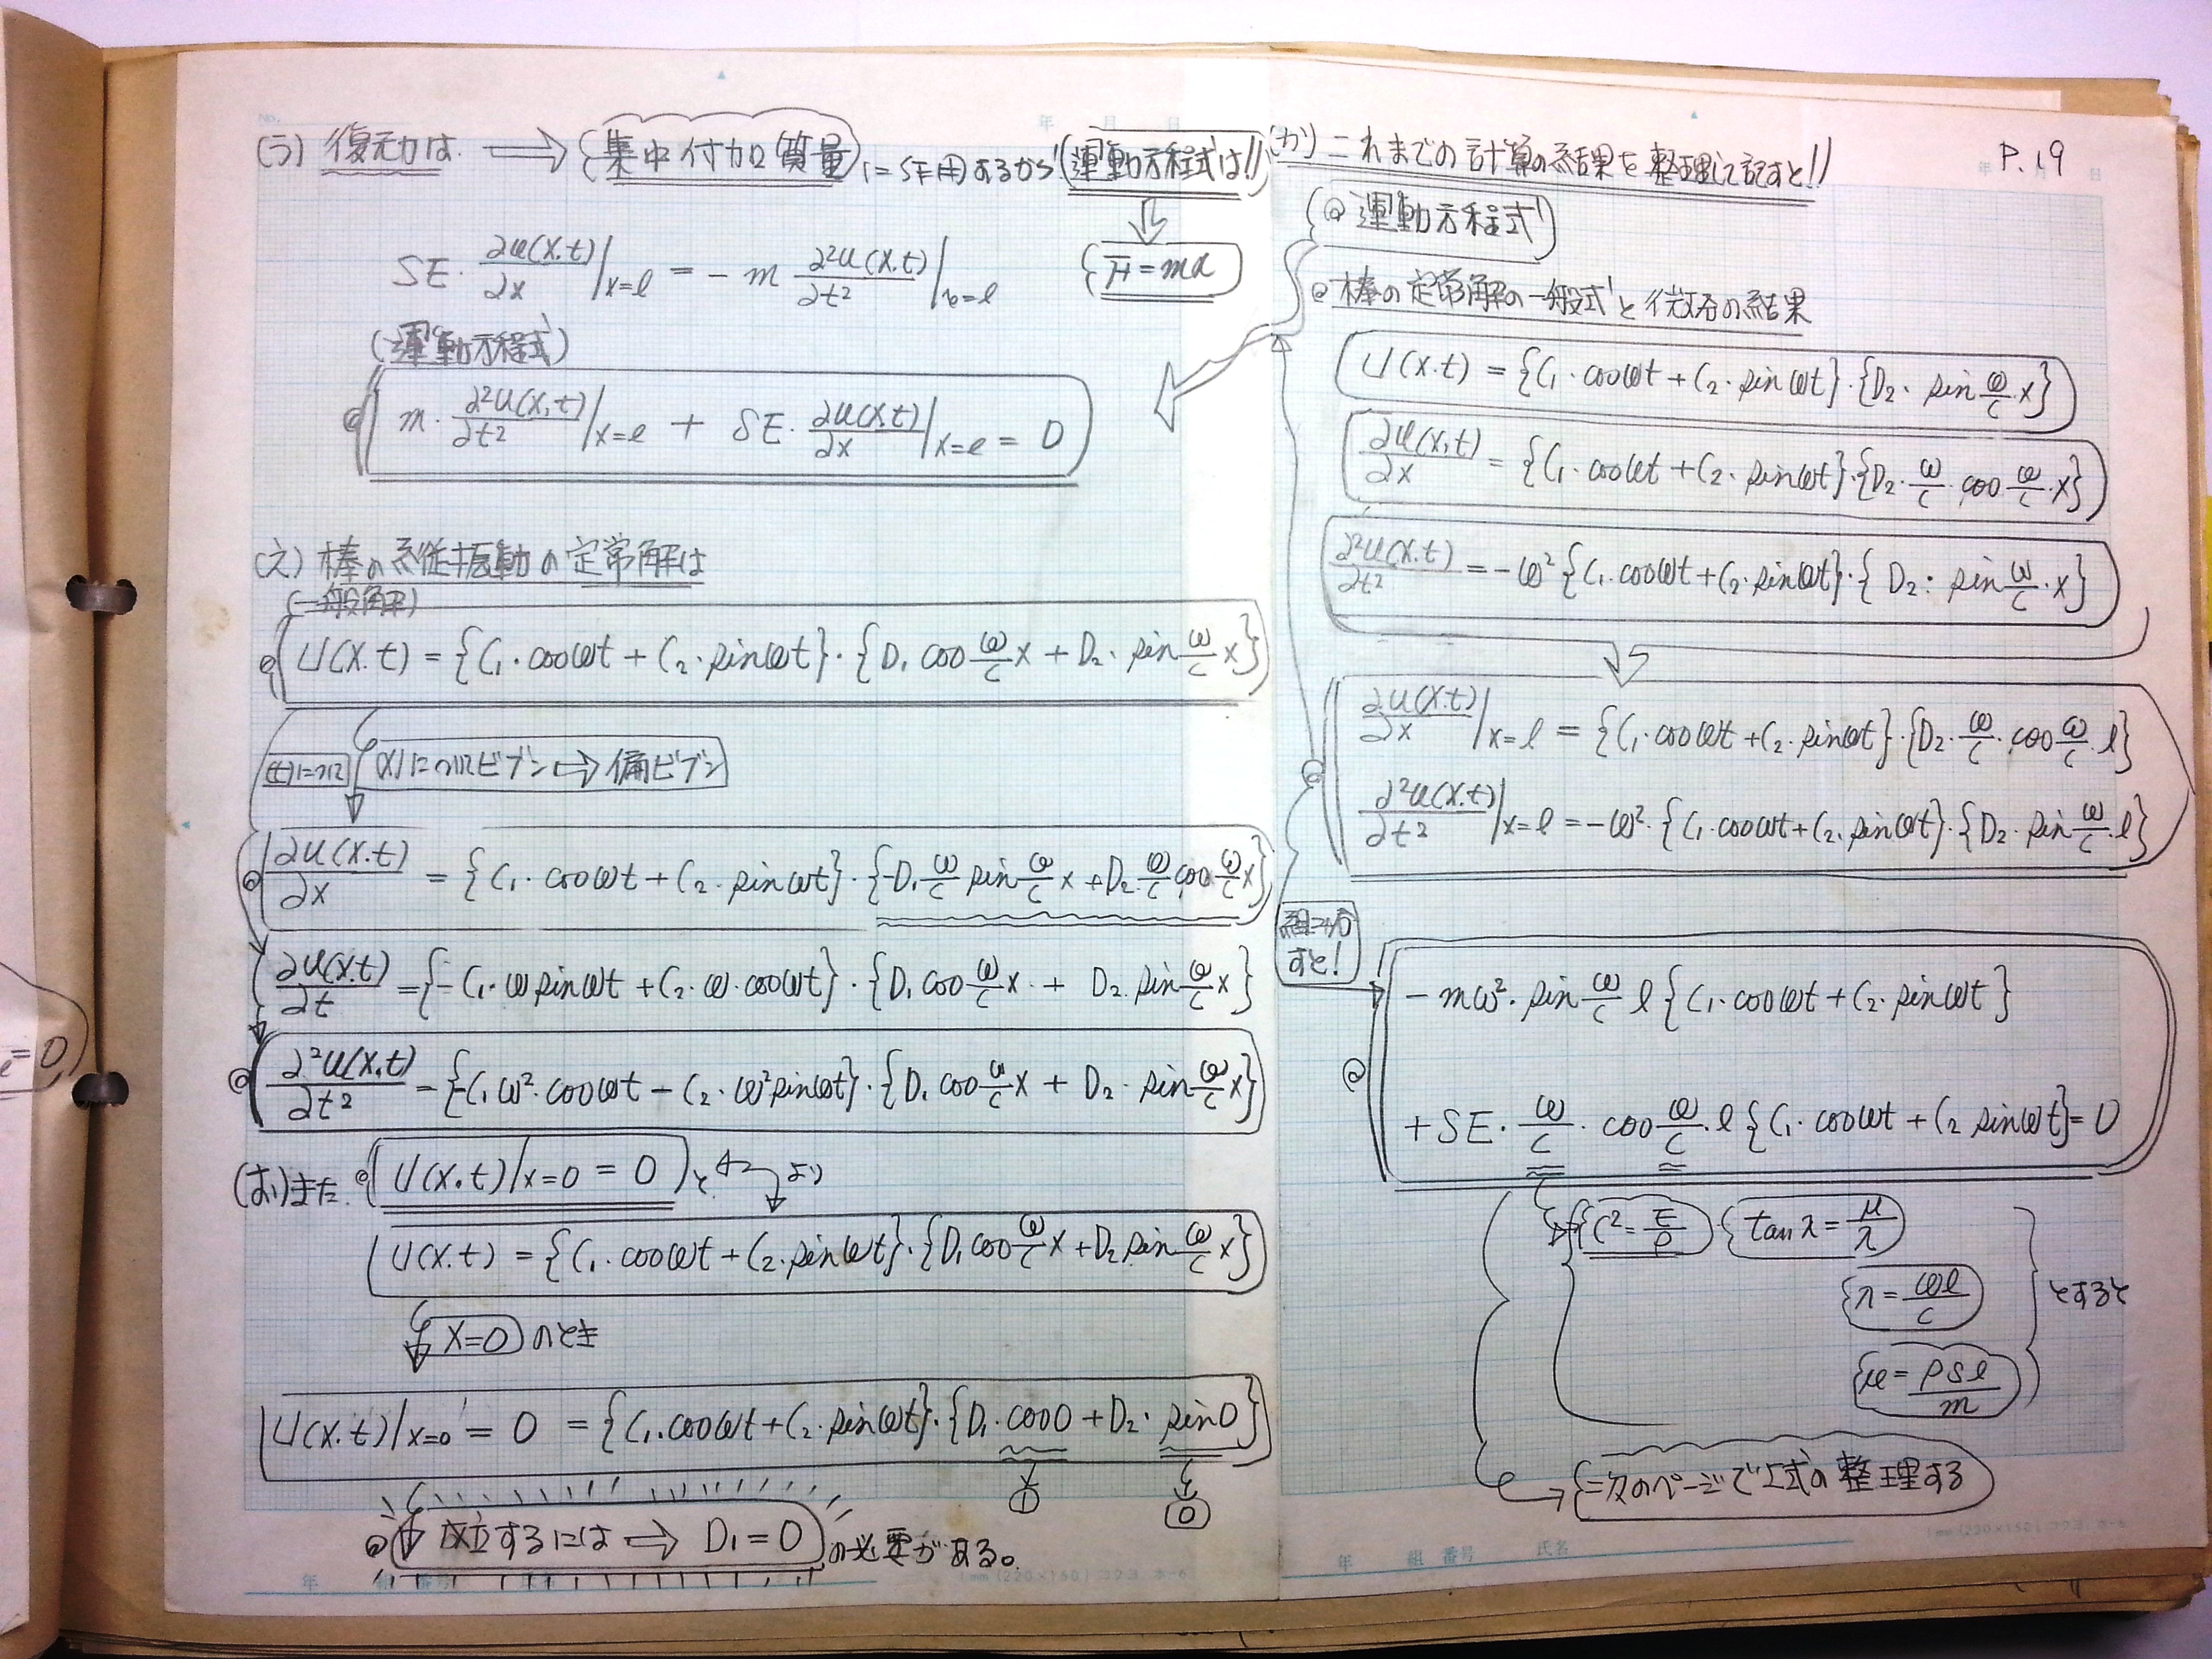 (う) 復元力は ⇒ {集中付加質量} に作用するから (運動方程式は!!)
SE・∂u(x.t)/∂x|x=l = - m ∂²u(x.t)/∂t²|x=l
{F=mα}
(運動方程式)
m・∂²u(x,t)/∂t²|x=l + SE・∂u(x.t)/∂x|x=l = 0
(え) 棒の縦振動の定常解は
(一般解)
U(x.t) = {C₁・cosωt + C₂・sinωt}・{D₁ cos ω/c x + D₂・sin ω/c x}
(t)について
(x)についてビブン⇒偏ビブン
∂u(x.t)/∂x = {C₁・cosωt + C₂・sinωt}・{-D₁ ω/c sin ω/c x + D₂・ω/c cos ω/c x}
∂u(x.t)/∂t = {-C₁・ω sinωt + C₂・ω・cosωt}・{D₁ cos ω/c x + D₂ sin ω/c x}
∂²u(x,t)/∂t² = {-C₁ω²・cosωt - C₂・ω² sinωt}・{D₁ cos ω/c x + D₂・sin ω/c x}
(お) また U(x.t)|x=0 = 0 と より
U(x.t) = {C₁・cosωt + C₂・sinωt}・{D₁ cos ω/c x + D₂ sin ω/c x}
x=0 のとき
U(x.t)|x=0 = 0 = {C₁・cosωt + C₂・sinωt}・{D₁・cos0 + D₂・sin0}
1 0
成立するには ⇒ D₁ = 0 の必要がある。
(か) これまでの計算の結果を整理して記すと!!
P.19
運動方程式
棒の定常解の一般式と微分の結果
U(x.t) = {C₁・cosωt + C₂・sinωt}・{D₂・sin ω/c x}
∂u(x,t)/∂x = {C₁・cosωt + C₂・sinωt}・{D₂・ω/c・cos ω/c・x}
∂²u(x.t)/∂t² = -ω² {C₁・cosωt + C₂・sinωt}・{D₂・sin ω/c・x}
∂u(x.t)/∂x|x=l = {C₁・cosωt + C₂・sinωt}・{D₂・ω/c・cos ω/c・l}
∂²u(x.t)/∂t²|x=l = -ω²・{C₁・cosωt + C₂・sinωt}・{D₂・sin ω/c・l}
すと!
- mω²・sin ω/c l {C₁・cosωt + C₂・sinωt}
+ SE・ω/c・cos ω/c・l {C₁・cosωt + C₂ sinωt} = 0
{c² = E/ρ} {tanλ = μ/λ}
{λ = ωl/c} とすると
{μ = ρSl/m}
次のページで上式の整理する
年 組 番号 氏名